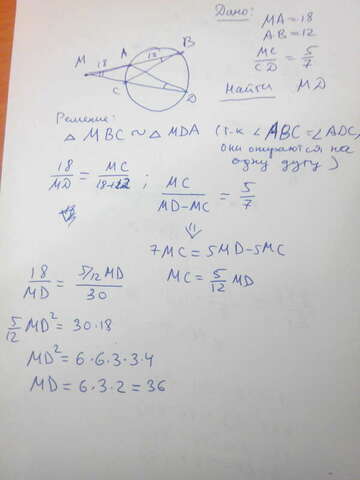 Дано:
MA = 18
AB = 12
MC/CD = 5/7
Найти MD
M 18 A 12 B
C D
Решение:
△ MBC ~ △ MDA (т.к ∠ABC = ∠ADC,
они опираются на
одну дугу)
18/MD = MC/18+12 ; MC/MD-MC = 5/7
⇓
7MC = 5MD-5MC
MC = 5/12 MD
18/MD = 5/12 MD/30
5/12 MD² = 30·18
MD² = 6·6·3·3·4
MD = 6·3·2 = 36